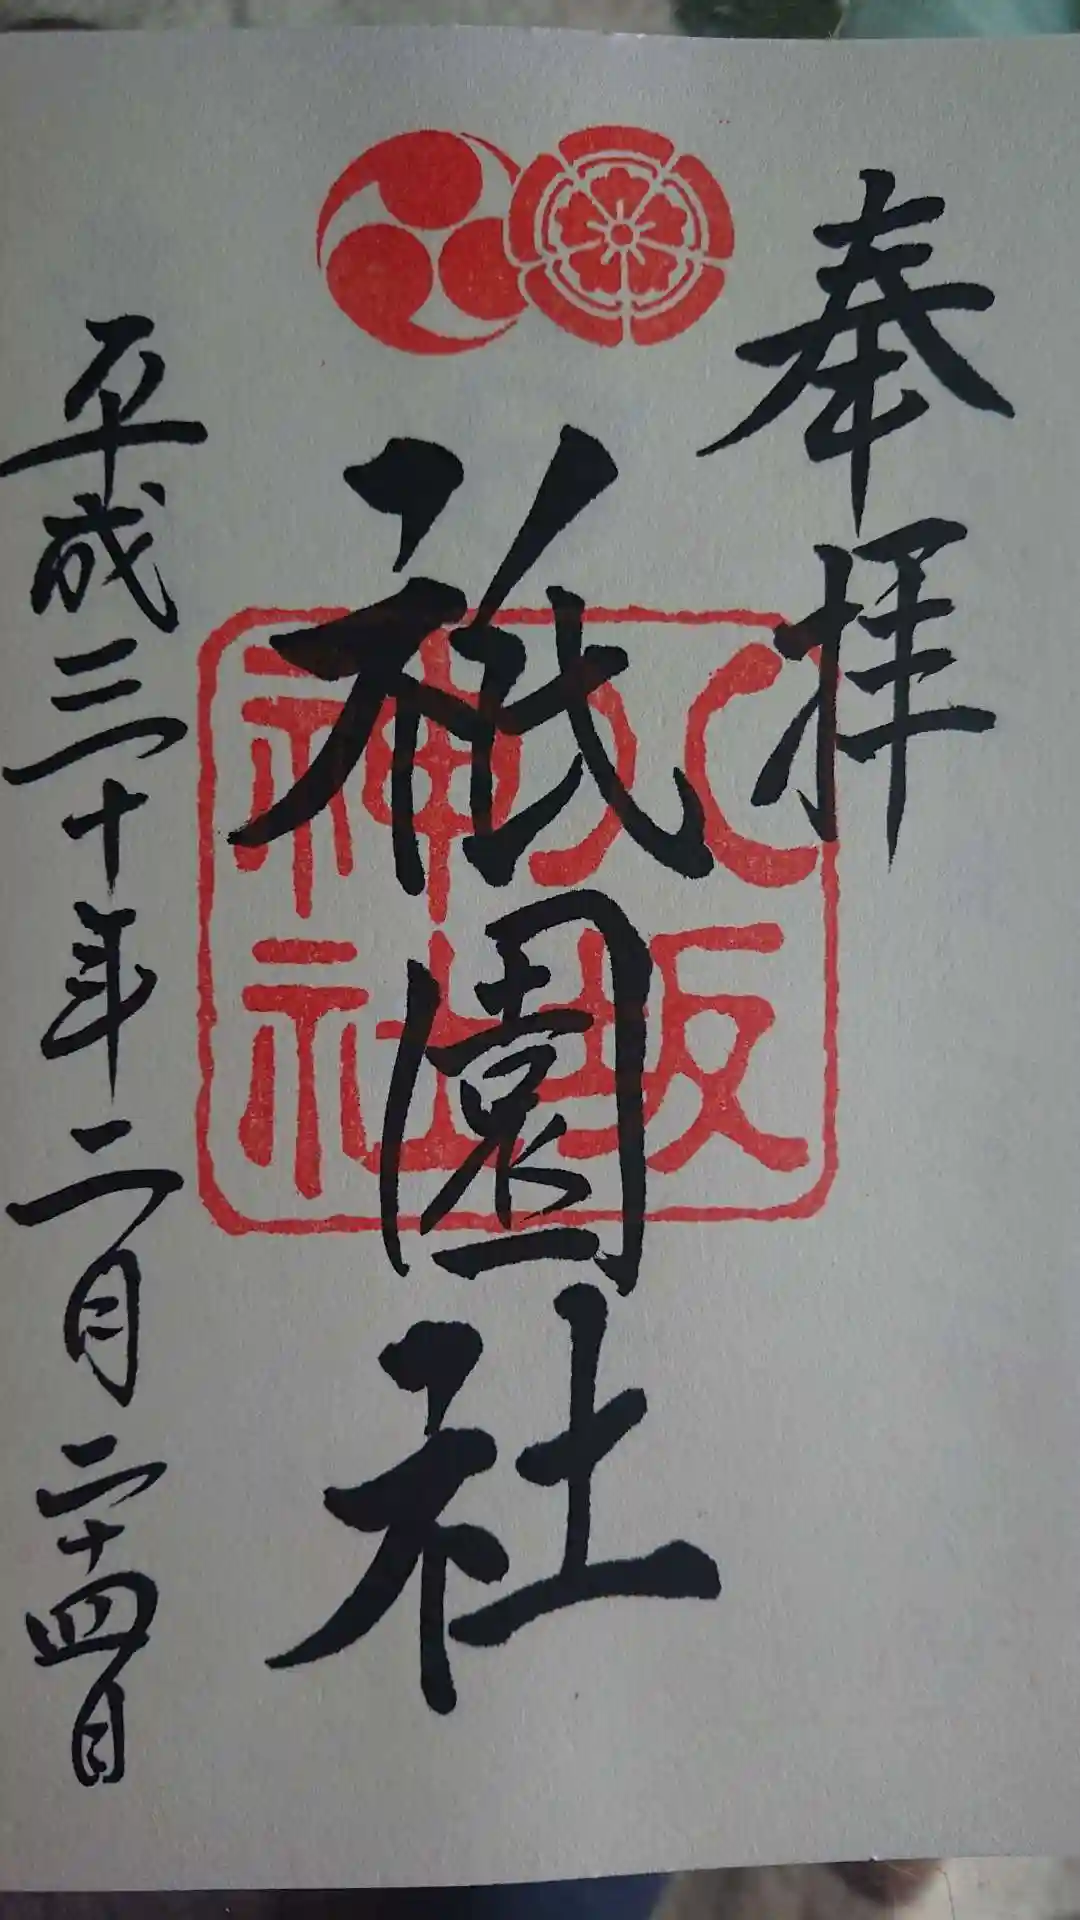 奉拝
祇園社
八坂
神社
平成三十年二月二十四日